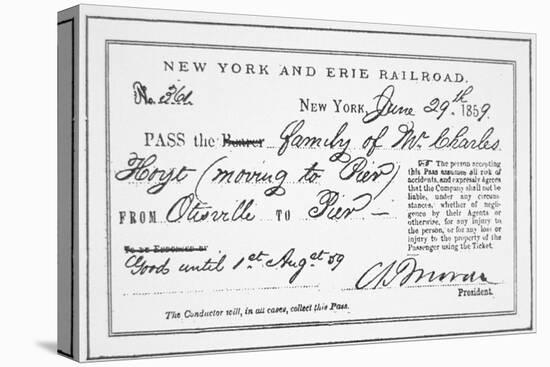 NEW YORK AND ERIE RAILROAD.
No. 36
NEW YORK, June 29.th 1859.
PASS the Bearer family of Mr Charles
Hoyt (moving to Pier)
FROM Otisville TO Pier —
N.B The person accepting
this Pass assumes all risk of
accidents, and expressly agrees
that the Company shall not be
liable, under any circum-
stances, whether of negli-
gence by their Agents or
otherwise, for any injury to
the person, or for any loss or
injury to the property of the
Passenger using the Ticket.
TO BE ENDORSED BY
Good until 1st Augst 59
Moran
President.
The Conductor will, in all cases, collect this Pass.